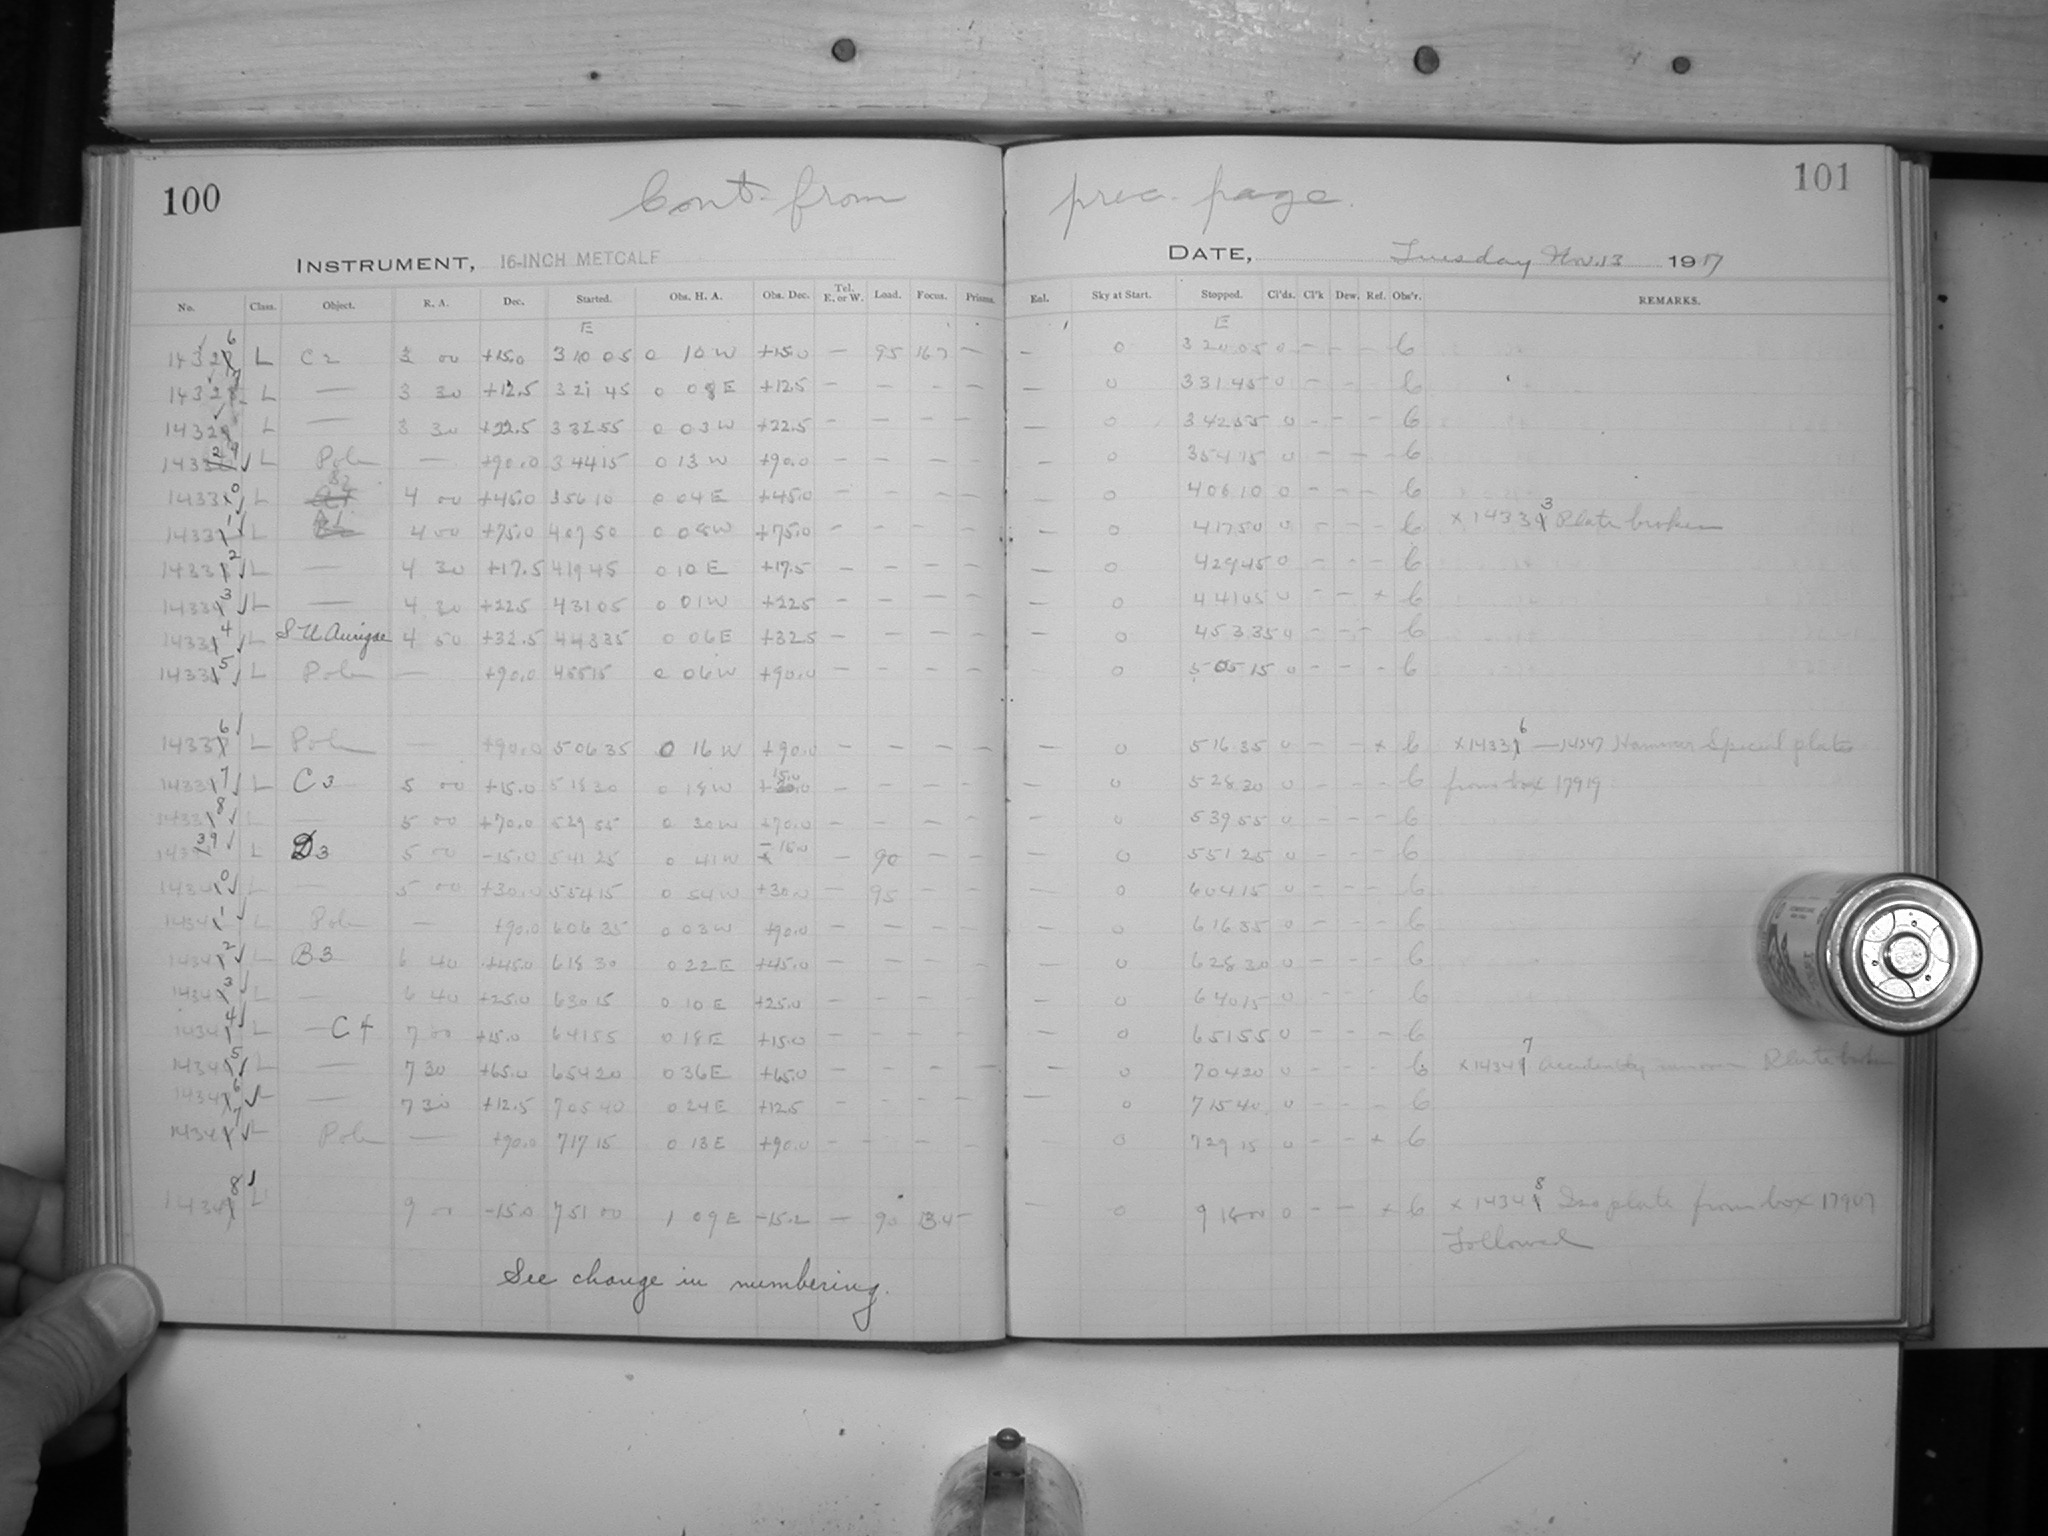 100
Cont. from prec. page.
101
INSTRUMENT, 16-INCH METCALF
DATE, Tuesday Nov. 13 1917
No. Class. Object. R. A. Dec. Started. Obs. H. A. Obs. Dec. Tel. E. or W. Load. Focus. Prisms. Eol. Sky at Start. Stopped. Cl'ds. Cl'k Dew. Ref. Obs'r. REMARKS.
E E
14326 L C2 3 00 +15.0 3 10 05 0 10 W +15.0 — 95 167 — — 0 3 20 05 0 - - - 6
14327 L — 3 30 +12.5 3 21 45 0 08 E +12.5 — — — — — 0 3 31 45 0 - - - 6
1432 L — 3 30 +22.5 3 32 55 0 03 W +22.5 — — — — — 0 3 42 55 0 - - - 6
14329 L Pole — +90.0 3 44 15 0 13 W +90.0 — — — — — 0 3 54 15 0 - - - 6
14330 L B2 4 00 +45.0 3 56 10 0 04 E +45.0 — — — — — 0 4 06 10 0 - - - 6
14331 L A1 4 00 +75.0 4 07 50 0 08 W +75.0 — — — — — 0 4 17 50 0 - - - 6 x 14333 Plate broken
14332 L — 4 30 +17.5 4 19 45 0 10 E +17.5 — — — — — 0 4 29 45 0 - - - 6
14333 L — 4 30 +22.5 4 31 05 0 01 W +22.5 — — — — — 0 4 41 05 0 - - x 6
14334 L S U Aurigae 4 50 +32.5 4 43 35 0 06 E +32.5 — — — — — 0 4 53 35 0 - - - 6
14335 L Pole — +90.0 4 55 15 0 06 W +90.0 — — — — — 0 5 05 15 0 - - - 6
14336 L Pole — +90.0 5 06 35 0 16 W +90.0 — — — — — 0 5 16 35 0 - - x 6 x 14336 — 14347 Hammer Special plates
14337 L C3 5 00 +15.0 5 18 30 0 18 W 15.0 — — — — — 0 5 28 30 0 - - - 6 from box 17919
14338 L — 5 00 +70.0 5 29 55 0 30 W +70.0 — — — — — 0 5 39 55 0 - - - 6
14339 L D3 5 00 -15.0 5 41 25 0 41 W -15.0 — 90 — — — 0 5 51 25 0 - - - 6
14340 L — 5 00 +30.0 5 54 15 0 54 W +30.0 — 95 — — — 0 6 04 15 0 - - - 6
14341 L Pole — +90.0 6 06 35 0 03 W +90.0 — — — — — 0 6 16 35 0 - - - 6
14342 L B3 6 40 +45.0 6 18 30 0 22 E +45.0 — — — — — 0 6 28 30 0 - - - 6
14343 L — 6 40 +25.0 6 30 15 0 10 E +25.0 — — — — — 0 6 40 15 0 - - - 6
14344 L — C4 7 00 +15.0 6 41 55 0 18 E +15.0 — — — — — 0 6 51 55 0 - - - 6
14345 L — 7 30 +65.0 6 54 20 0 36 E +65.0 — — — — — 0 7 04 20 0 - - - 6 x 14347 Plate broken
14346 L — 7 30 +12.5 7 05 40 0 24 E +12.5 — — — — — 0 7 15 40 0 - - - 6
14347 L Pole — +90.0 7 17 15 0 13 E +90.0 — — — — 0 7 29 15 0 - - x 6
14348 L 9 00 -15.0 7 51 00 1 09 E -15.2 — 90 — — 0 0 - - x 6 x 14348 Iso plate from box 17907
Followed
See change in numbering.